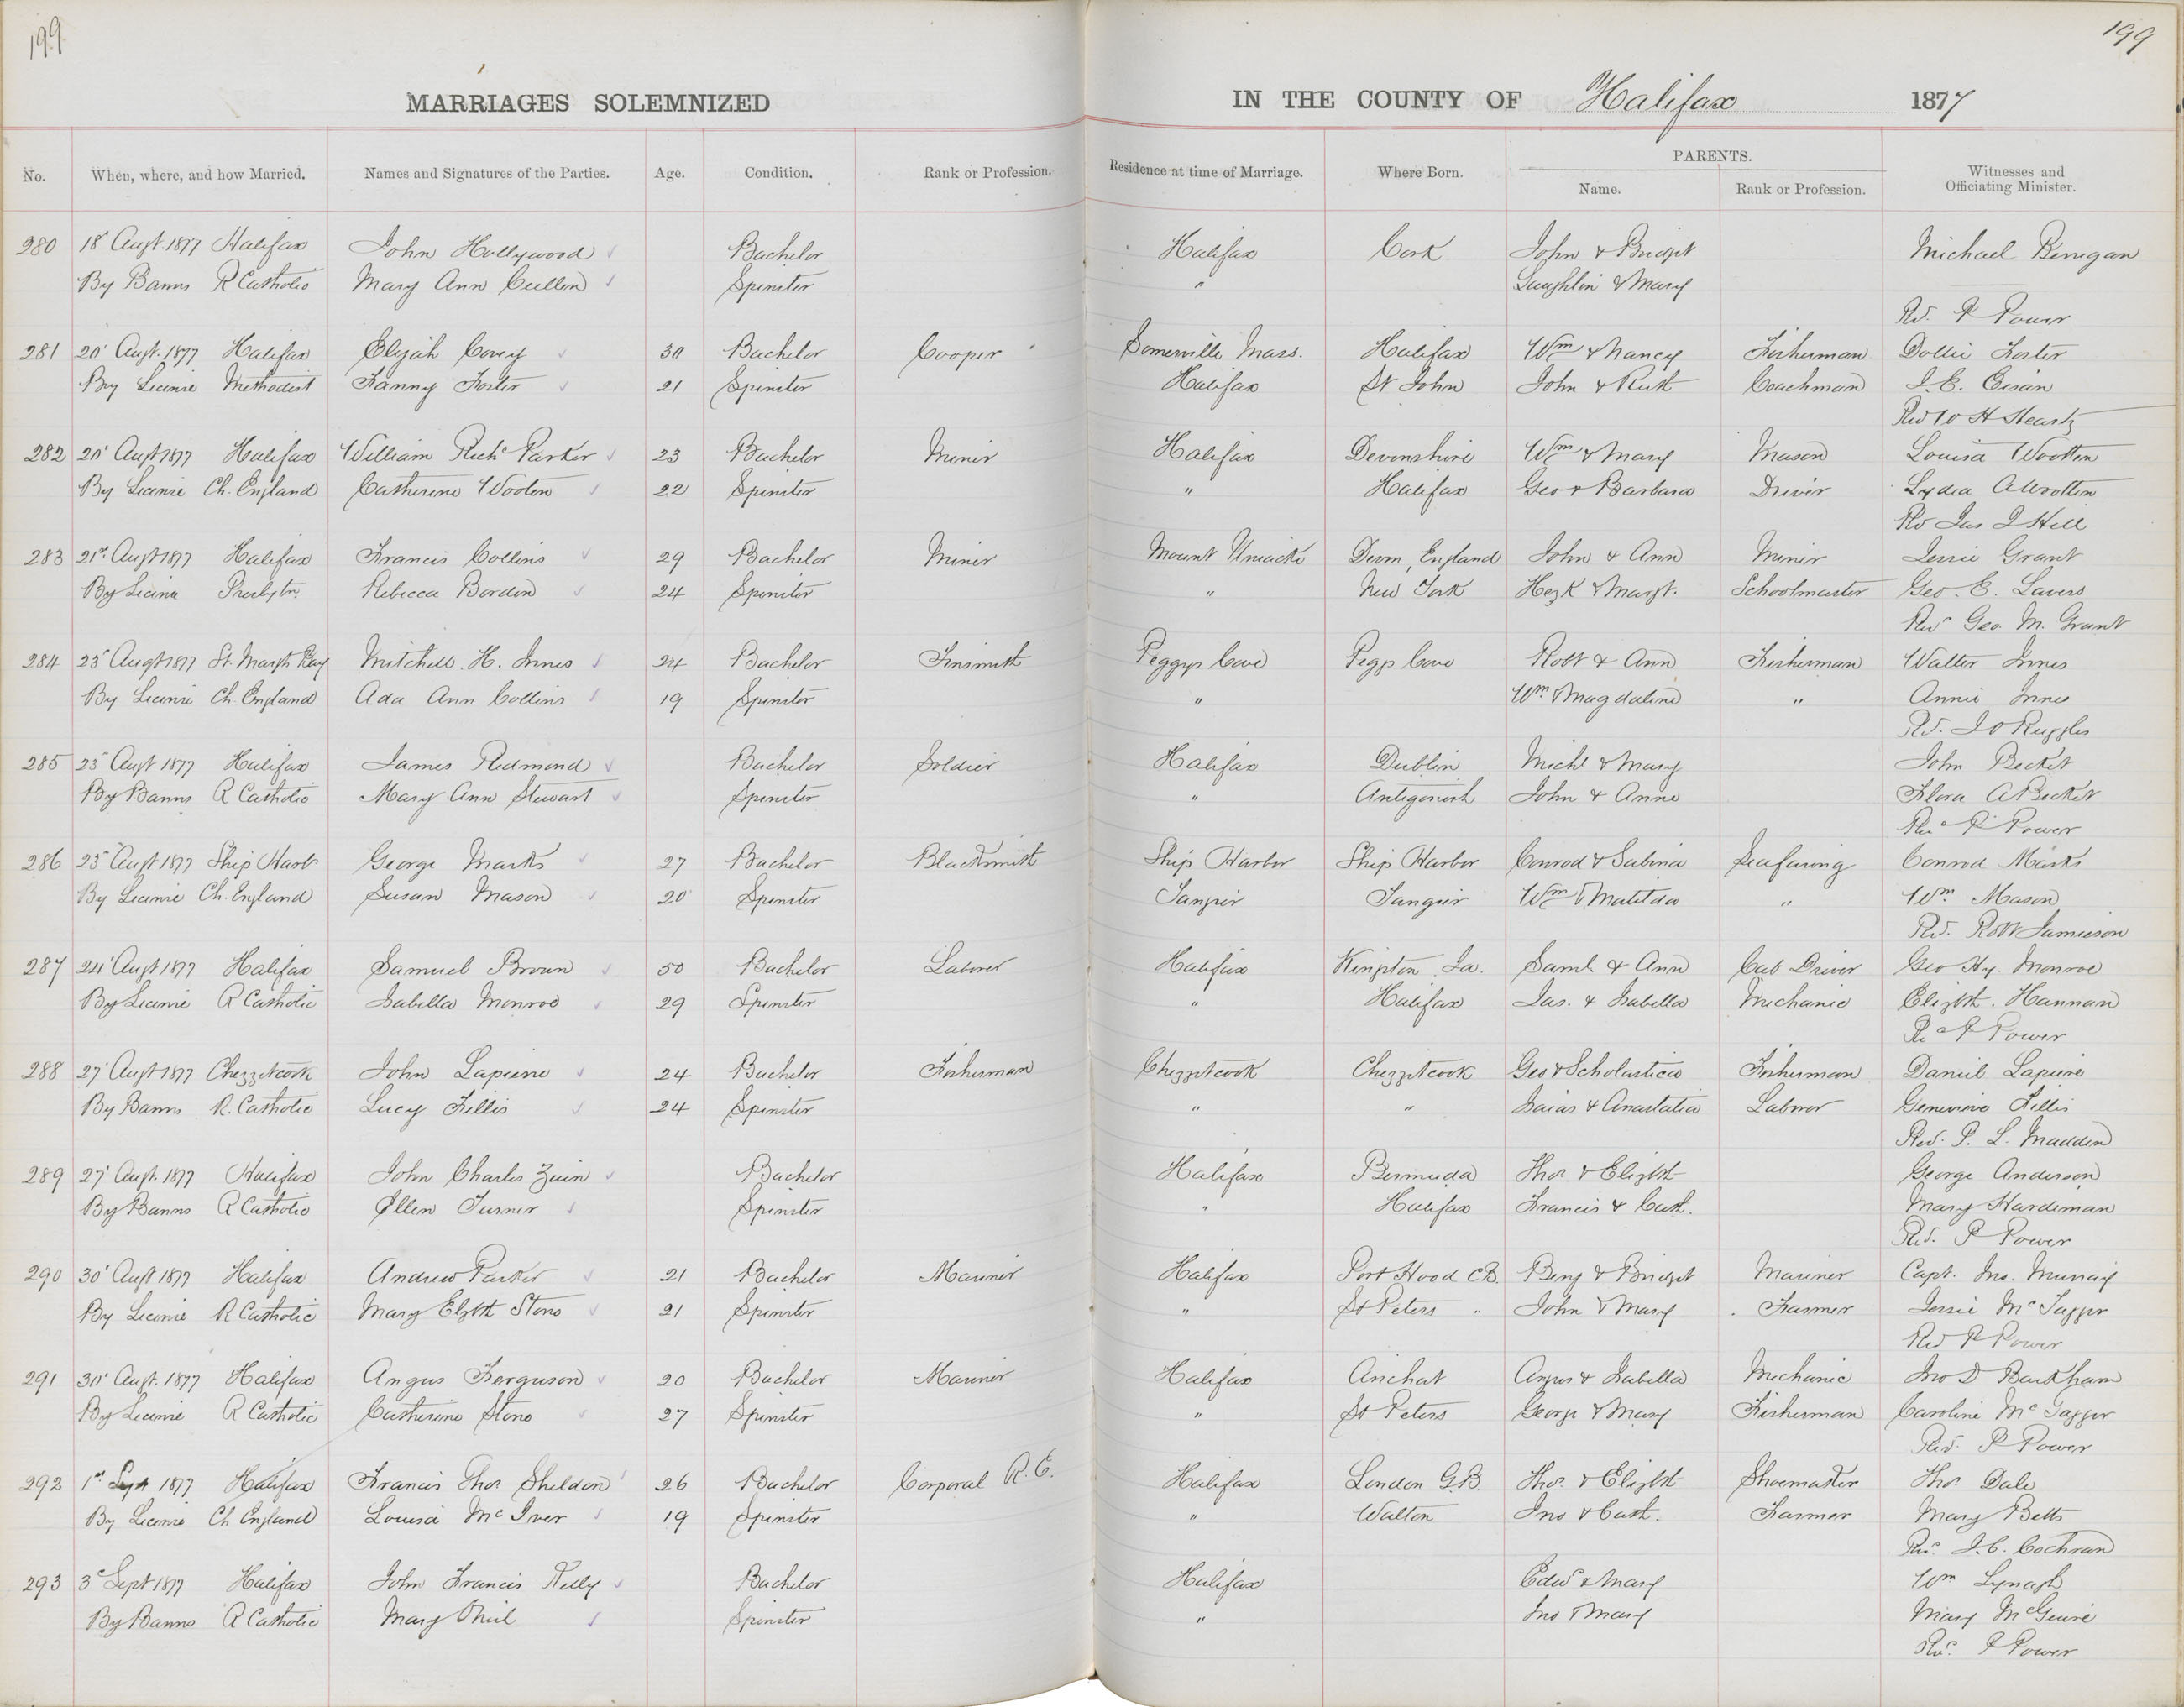 199
199
MARRIAGES SOLEMNIZED IN THE COUNTY OF Halifax 1877
No. When, where, and how Married. Names and Signatures of the Parties. Age. Condition. Rank or Profession. Residence at time of Marriage. Where Born. PARENTS. Name. Rank or Profession. Witnesses and Officiating Minister.
280 18' Augt 1877 Halifax John Hollywood Bachelor Halifax Cork John & Bridget Michael
By Banns R Catholic Mary Ann Cullen Spinster " Laughlin & Mary
Rev. P Power
281 20' Augt. 1877 Halifax Elijah Covey 30 Bachelor Cooper Somerville Mass. Halifax Wm & Nancy Fisherman Dollie Foster
By License Methodist Fanny Foster 21 Spinster Halifax St John John & Ruth Coachman
Rev W H Heartz
282 20' Augt 1877 Halifax William Richd Parker 23 Bachelor Miner Halifax Devonshire Wm & Mary Mason Louisa Wootten
By License Ch. England Catherine Wooten 22 Spinster " Halifax Geo & Barbara Driver Lydia A Wootten
Rev Jas J Hill
283 21st Augt 1877 Halifax Francis Collins 29 Bachelor Miner Mount Uniacke Devon, England John & Ann Miner Jessie Grant
By License Presbytn. Rebecca Borden 24 Spinster " New York Hezk & Margt. Schoolmaster Geo. E. Lavers
Revd Geo. M. Grant
284 23' Augt 1877 St. Margts Bay Mitchell. H. Innes 24 Bachelor Tinsmith Peggys Cove Pegs Cove Robt & Ann Fisherman Walter Innes
By License Ch. England Ada Ann Collins 19 Spinster " Wm & Magdaline " Annie Innes
Rev. J O Ruggles
285 23' Augt 1877 Halifax James Redmond Bachelor Soldier Halifax Dublin Michl & Mary John Becket
By Banns R Catholic Mary Ann Stewart Spinster " Antigonish John & Anne Flora A Becket
Revd P Power
286 23' Augt 1877 Ship Harb George Marks 27 Bachelor Blacksmith Ship Harbor Ship Harbor Conrod & Sabina Seafaring Conrod Marks
By License Ch. England Susan Mason 20 Spinster Tangier Tangier Wm & Matilda " Wm Mason
Rev. Robt Jamieson
287 24' Augt 1877 Halifax Samuel Brown 50 Bachelor Laborer Halifax Kingston Ja. Saml & Ann Cab Driver Geo Hy. Monroe
By License R Catholic Isabella Monroe 29 Spinster " Halifax Jas. & Isabella Mechanic Elizbth. Hannan
Revd P Power
288 27' Augt 1877 Chezzetcook John Lapierre 24 Bachelor Fisherman Chezzetcook Chezzetcook Geo & Scholastica Fisherman Daniel Lapierre
By Banns R. Catholic Lucy Fillis 24 Spinster " " Isaias & Anastatia Laborer Genevieve Fillis
Rev. P. L. Madden
289 27' Augt. 1877 Halifax John Charles Bachelor Halifax Bermuda Thos & Elizbth George Anderson
By Banns R Catholic Ellen Turner Spinster " Halifax Francis & Cath. Mary Hardiman
Rev. P Power
290 30' Augt 1877 Halifax Andrew Parker 21 Bachelor Mariner Halifax Port Hood CB. Benj & Bridget Mariner Capt. Jno. Murray
By License R Catholic Mary Elzbth Stone 21 Spinster " St Peters " John & Mary Farmer Jessie
Rev P Power
291 30' Augt. 1877 Halifax Angus Ferguson 20 Bachelor Mariner Halifax Arichat Angus & Isabella Mechanic Jno D
By License R Catholic Catherine Stone 27 Spinster " St Peters George & Mary Fisherman Caroline
Rev. P Power
292 1st Sept 1877 Halifax Francis Thos Sheldon 26 Bachelor Corporal R.E. Halifax London G.B. Thos. & Elizbth Shoemaker Thos. Dale
By License Ch England Louisa McIver 19 Spinster " Walton Jno & Cath. Farmer Mary Betts
Revd. J.C. Cochran
293 3d Sept 1877 Halifax John Francis Kelly Bachelor Halifax Edwd & Mary Wm Lynagh
By Banns R Catholic Mary ONeil Spinster " Jno & Mary Mary McGuire
Revd. P Power